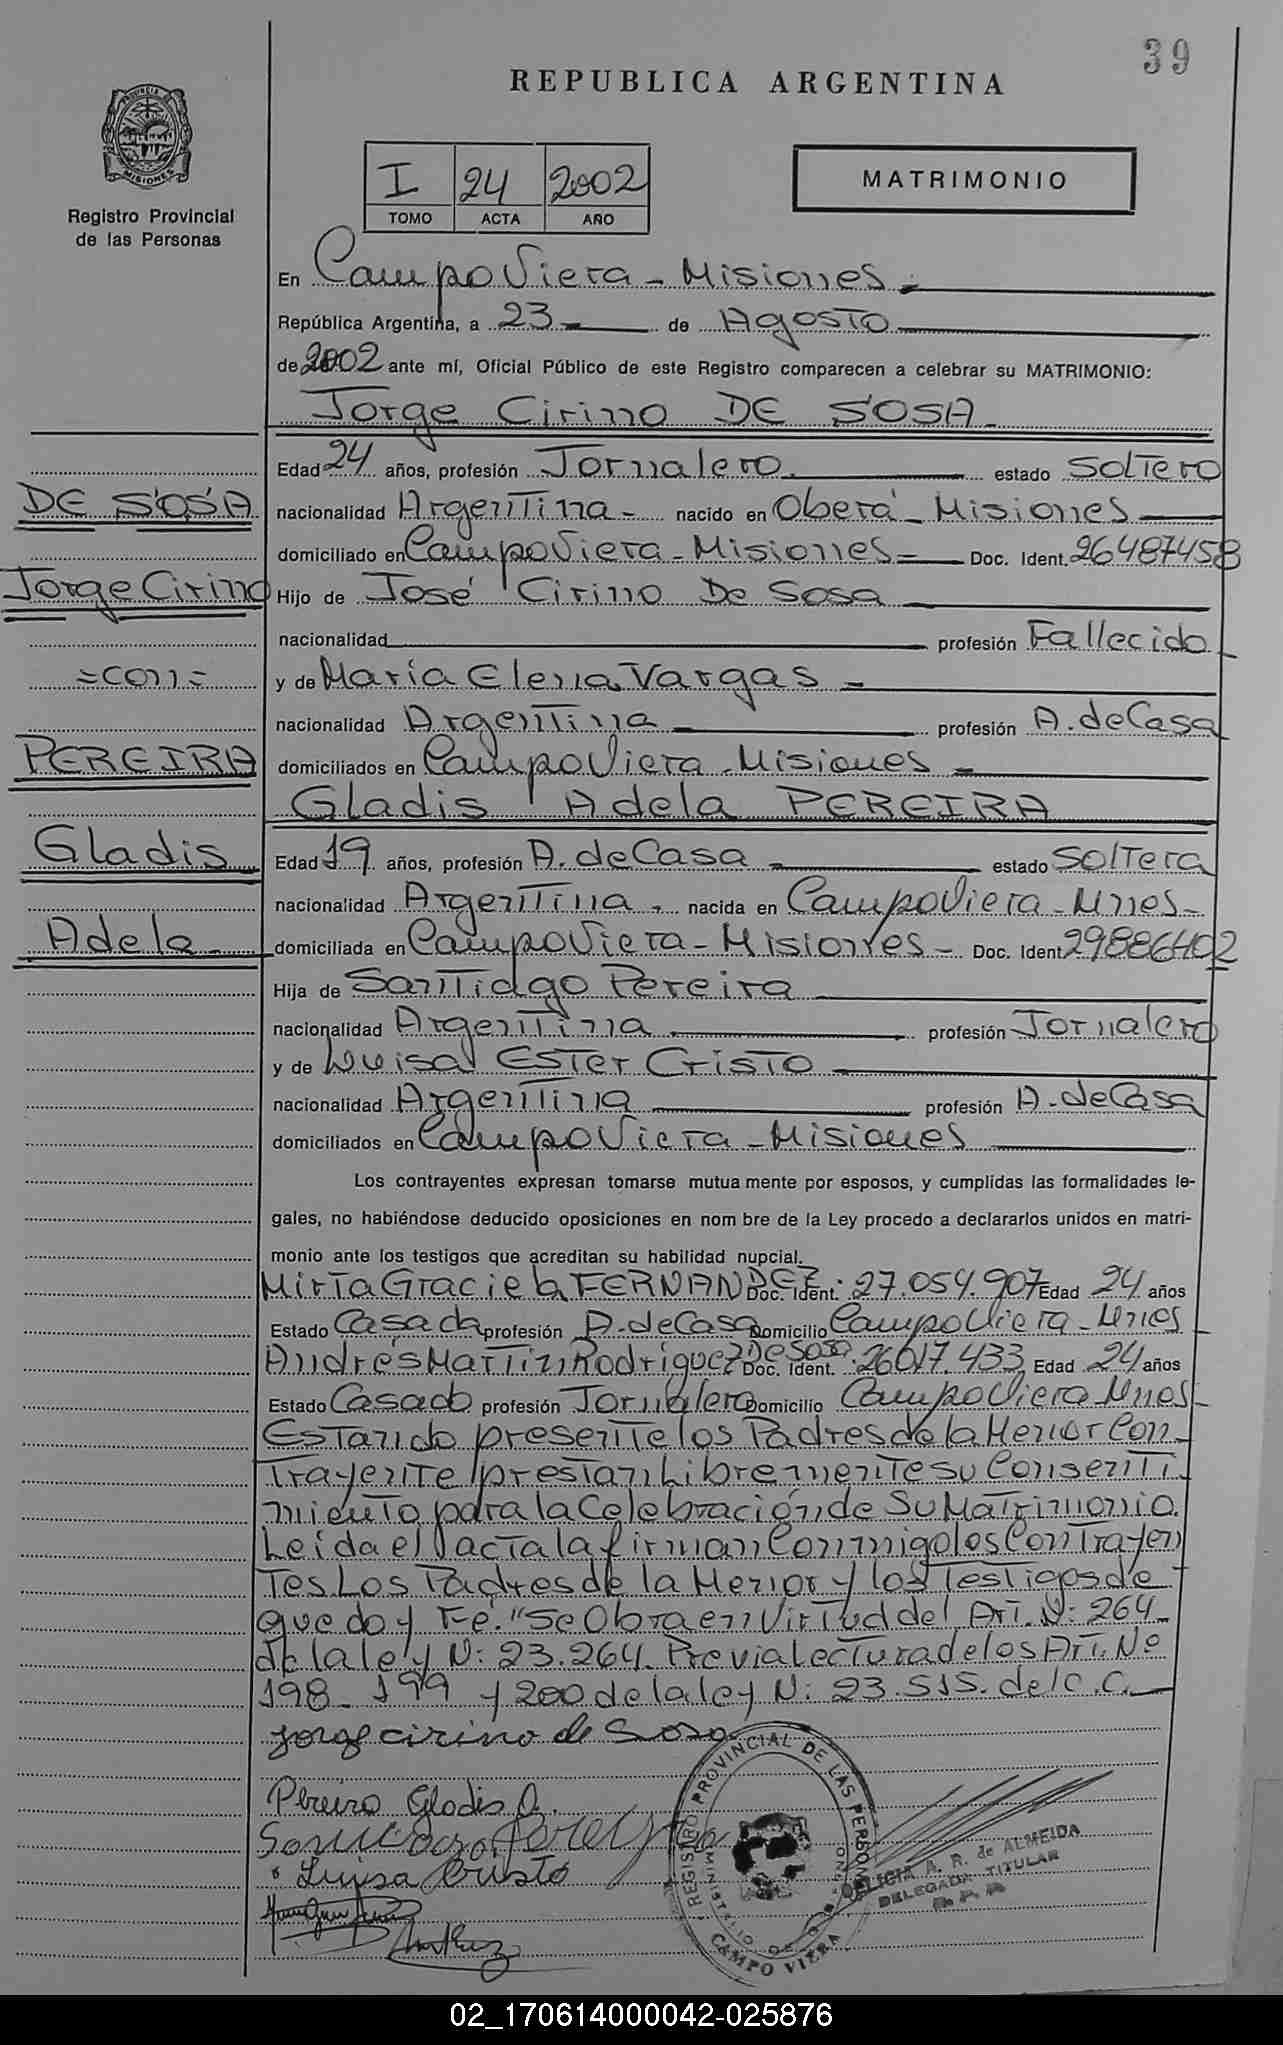 39
REPUBLICA ARGENTINA
PROVINCIA
MISIONES
Registro Provincial
de las Personas
I 24 2002
TOMO ACTA AÑO
MATRIMONIO
En Campo Viera - Misiones.
República Argentina, a 23 de Agosto
de 2002 ante mí, Oficial Público de este Registro comparecen a celebrar su MATRIMONIO:
Jorge Cirino DE SOSA
Edad 24 años, profesión Jornalero. estado Soltero
DE SOSA
nacionalidad Argentina - nacido en Oberá - Misiones
domiciliado en Campo Viera - Misiones = Doc. Ident. 26487458
Jorge Cirino
Hijo de José Cirino De Sosa
nacionalidad profesión Fallecido
=con=
y de María Elena Vargas -
nacionalidad Argentina profesión A. de Casa
PEREIRA
domiciliados en Campo Viera - Misiones -
Gladis Adela PEREIRA
Gladis
Edad 19 años, profesión A. de Casa - estado Soltera
nacionalidad Argentina - nacida en Campo Viera - Mnes -
Adela -
domiciliada en Campo Viera - Misiones - Doc. Ident. 29886402
Hija de Santiago Pereira
nacionalidad Argentina profesión Jornalero
y de Luisa Ester Cristo
nacionalidad Argentina profesión A. de Casa
domiciliados en Campo Viera - Misiones
Los contrayentes expresan tomarse mutua mente por esposos, y cumplidas las formalidades le-
gales, no habiéndose deducido oposiciones en nom bre de la Ley procedo a declararlos unidos en matri-
monio ante los testigos que acreditan su habilidad nupcial.
Mirta Graciela FERNANDEZ Doc. Ident.: 27.054.907 Edad 24 años
Estado Casada profesión A. de Casa Domicilio Campo Viera - Mnes
Andrés Martin Rodriguez De Sosa Doc. Ident.: 26017.433 Edad 24 años
Estado Casado profesión Jornalero Domicilio Campo Viera Mnes -
Estando presente los Padres de la Menor Con-
trayente prestan Libremente su Consenti-
miento para la Celebración de Su Matrimonio.
Leida el acta la firman Conmigo los Contrayen
tes Los Padres de la Menor y los Testigos de
que doy Fé. "Se Obra en Virtud del Art. N: 264
de la ley N: 23.264. Previa lectura de los Art. Nº
198 - 199 y 200 de la ley N: 23.515. del C.C.
Jorge cirino de Sosa
Pereira Gladis A.
Luisa Cristo
REGISTRO PROVINCIAL DE LAS PERSONAS
MINISTERIO DE GOBIERNO
CAMPO VIERA
A. R. de ALMEIDA
DELEGADA TITULAR
R. P. P.
02_170614000042-025876